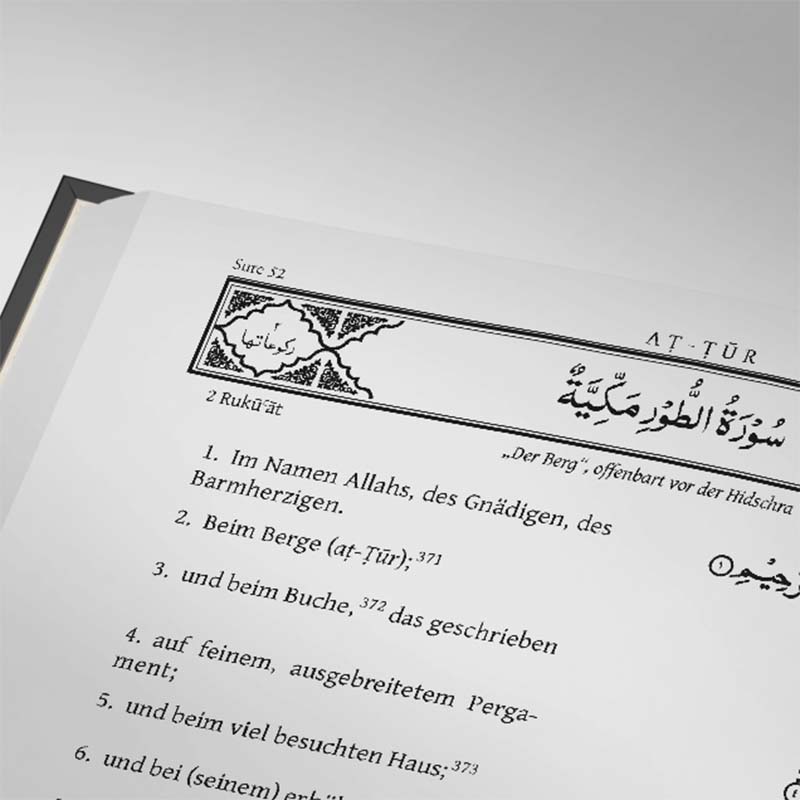 Sure 52
AṬ-ṬŪR
٢
ركوعاتها
سُوْرَةُ الطُّوْرِ مَكِّيَّةٌ
2 Rukūʿāt
„Der Berg“, offenbart vor der Hidschra
1. Im Namen Allahs, des Gnädigen, des
Barmherzigen.
2. Beim Berge (aṭ-Ṭūr);371
3. und beim Buche, 372 das geschrieben
4. auf feinem, ausgebreitetem Perga-
ment;
5. und beim viel besuchten Haus;373
6. und bei (seinem)